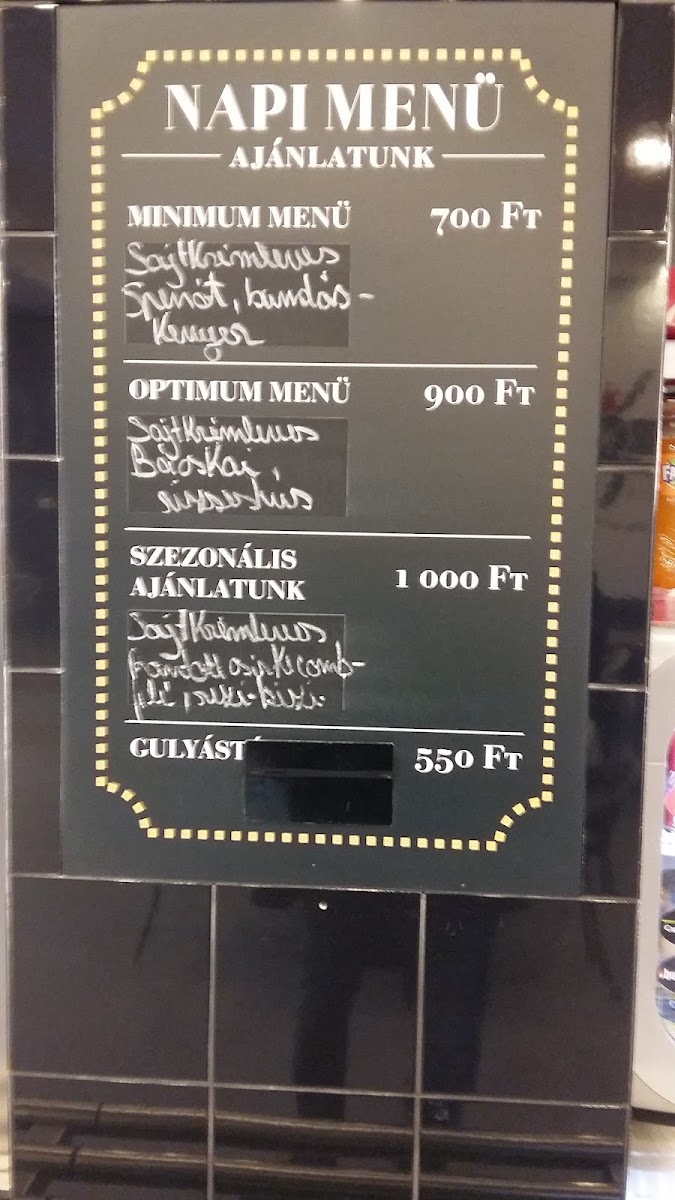 NAPI MENÜ
AJÁNLATUNK
MINIMUM MENÜ 700 FT
Sajtkrémleves
Spenót, bundás-
kenyér
OPTIMUM MENÜ 900 FT
Sajtkrémleves
Bácskai
rizseshús
SZEZONÁLIS
AJÁNLATUNK 1 000 FT
Sajtkrémleves
rántott csirkecomb-
filé, rizi-bizi
GULYÁST 550 FT